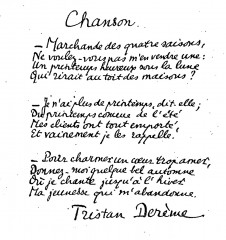 Chanson.
— Marchande des quatre saisons,
Ne voulez-vous pas m'en vendre une :
Un printemps heureux sous la lune
Qui rirait au toit des maisons ?
— Je n'ai plus de printemps, dit-elle ;
Du printemps comme de l'été
Mes clients ont tout emporté,
Et vainement je les rappelle.
— Pour charmer un cœur trop amer,
Donnez-moi quelque bel automne
Où je chante jusqu'à l'hiver
Ma jeunesse qui m'abandonne.
Tristan Derème